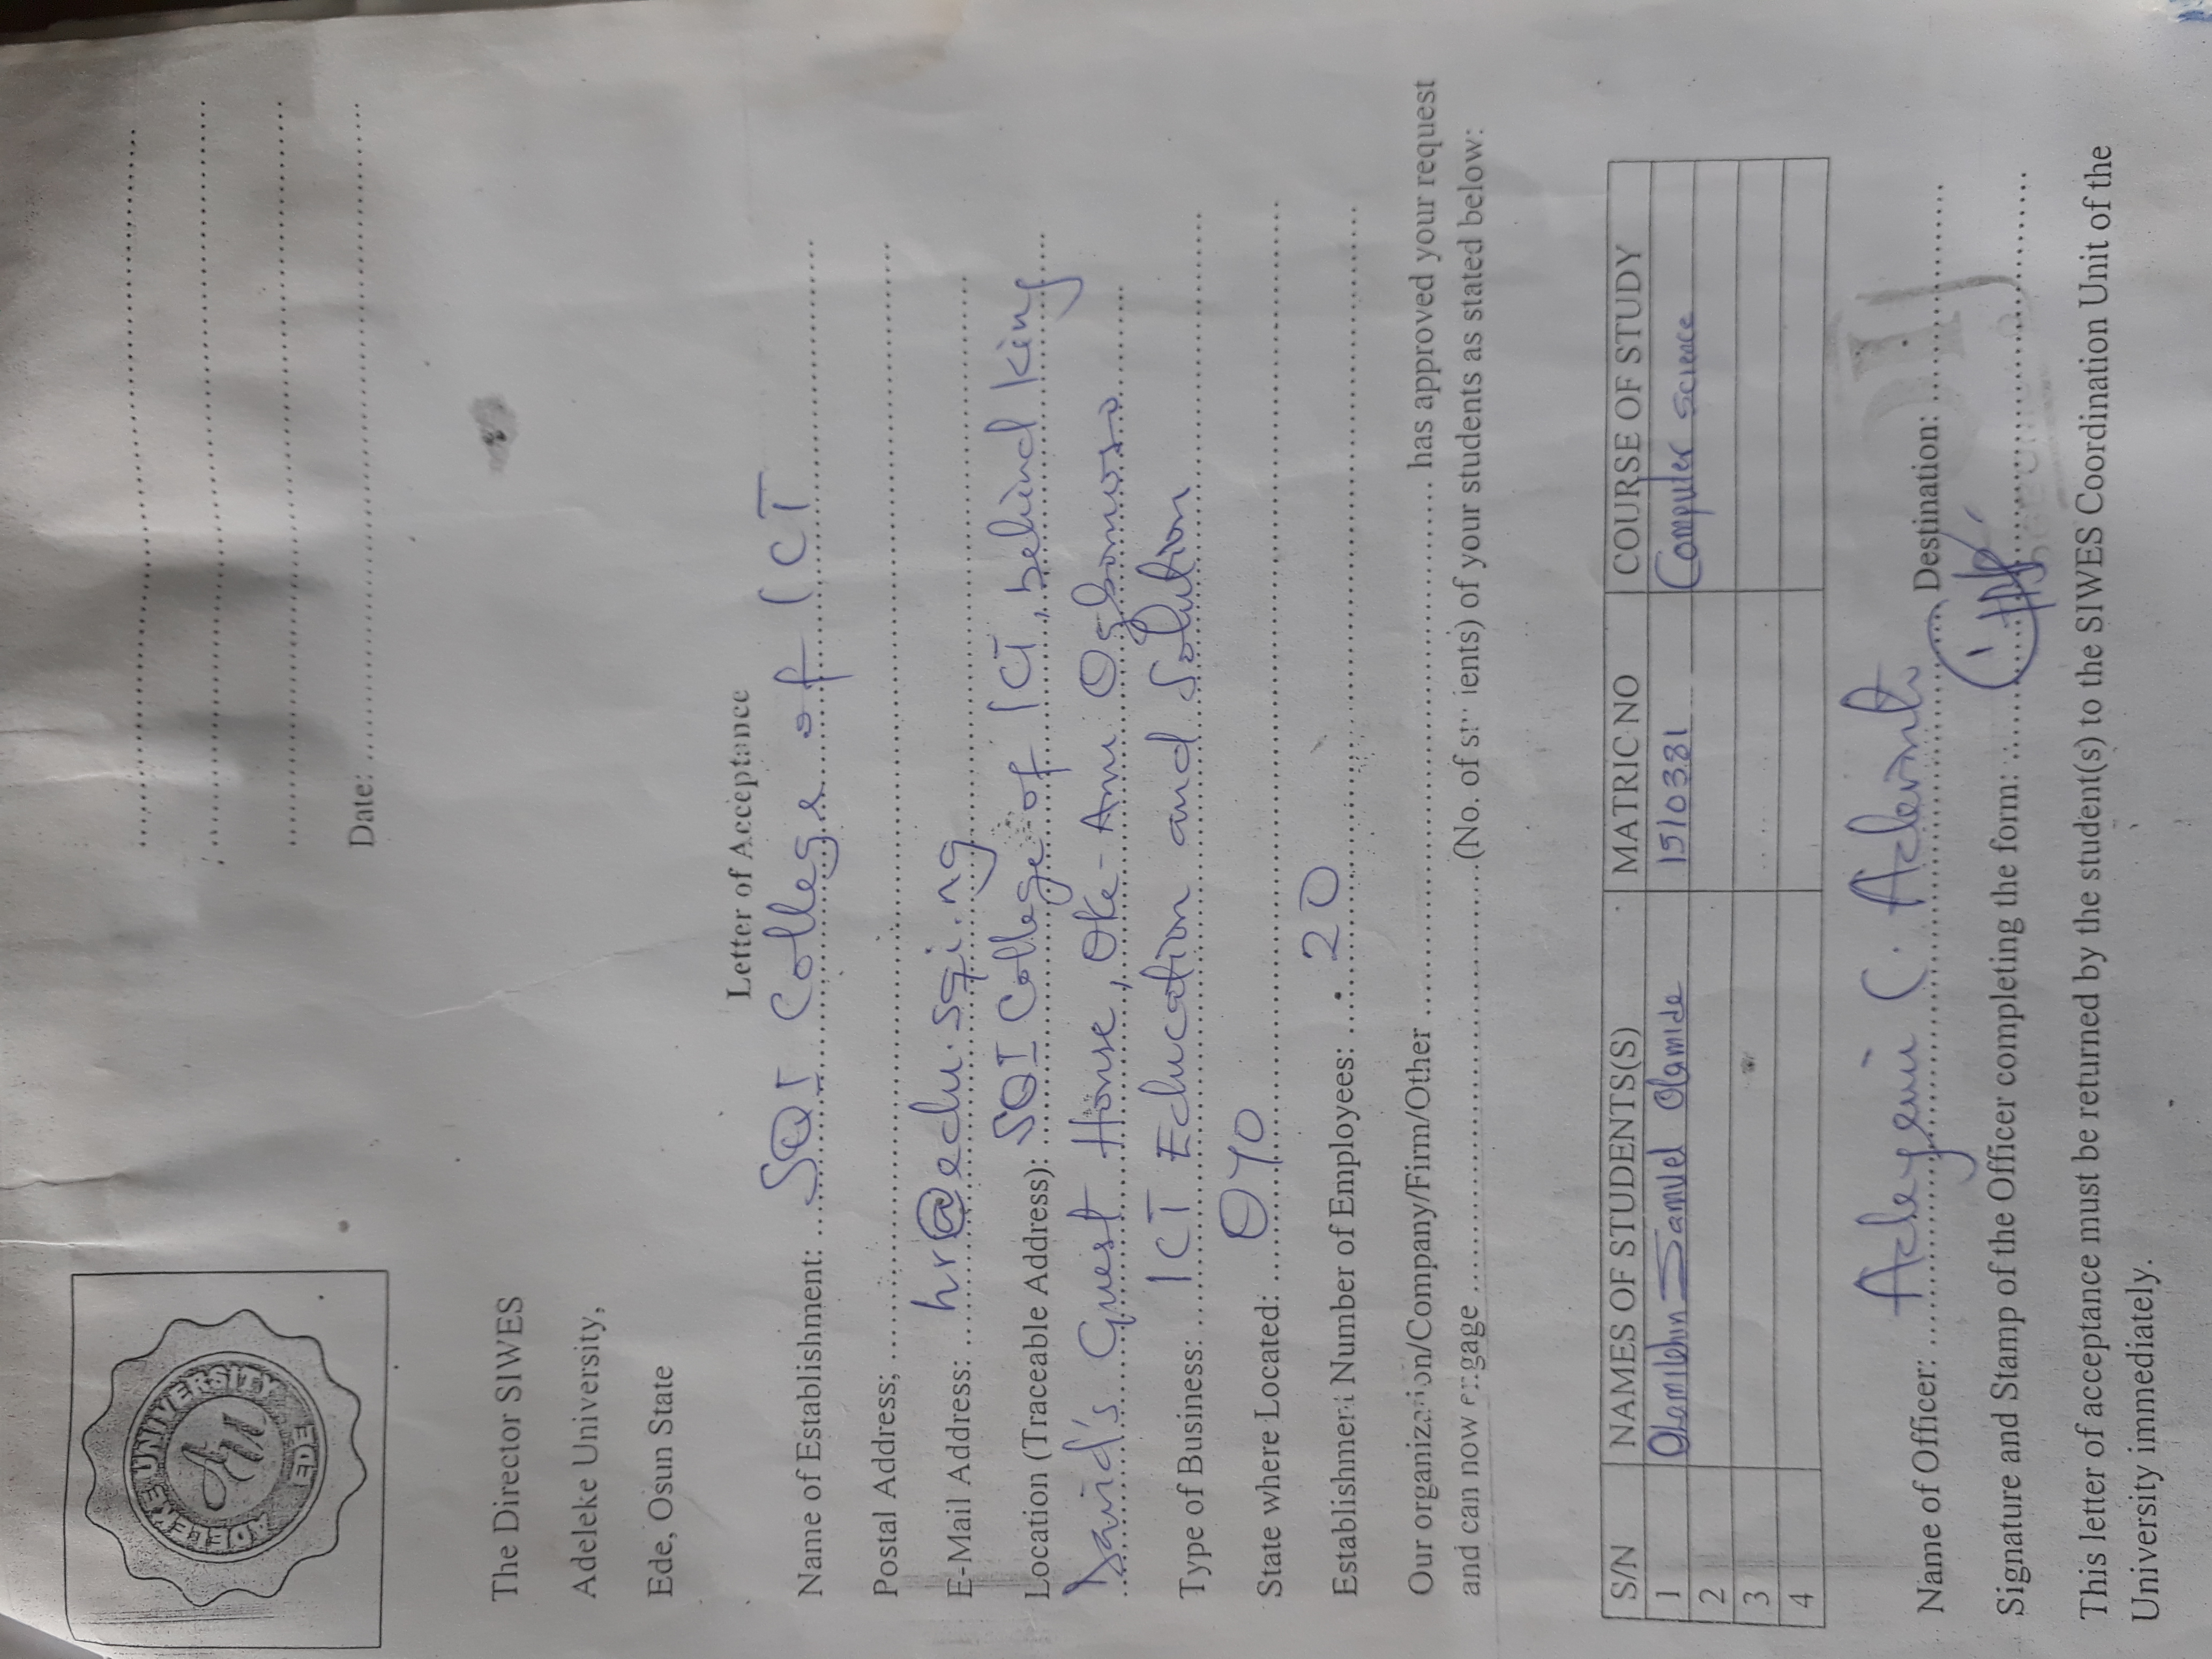 ADELEKE UNIVERSITY
AU
EDE
Date:
The Director SIWES
Adeleke University,
Ede, Osun State
Letter of Acceptance
Name of Establishment: SQI College of ICT
Postal Address;
E-Mail Address: hr@edu.sqi.ng
Location (Traceable Address): SQI College of ICT, behind King
David's Guest House, Oke-Anu Ogbomoso
Type of Business: ICT Education and Solution
State where Located: OYO
Establishment Number of Employees: 20
Our organization/Company/Firm/Other has approved your request
and can now engage (No. of students) of your students as stated below:
S/N NAMES OF STUDENTS(S) MATRIC NO COURSE OF STUDY
1 Olamilehin Samuel Olamide 1510331 Computer science
2
3
4
Name of Officer: Adeyemi C. Adewale Destination:
Signature and Stamp of the Officer completing the form:
This letter of acceptance must be returned by the student(s) to the SIWES Coordination Unit of the
University immediately.